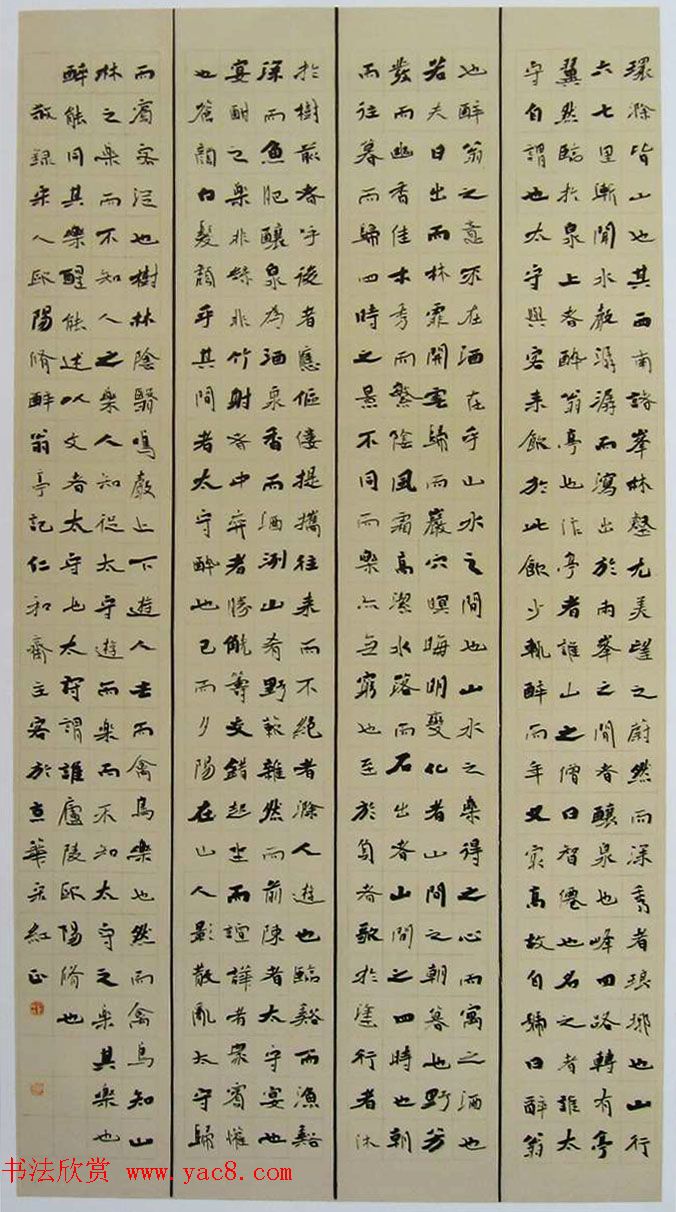 環滁皆山也其西南諸峯林壑尤美望之蔚然而深秀者琅琊也山行
六七里漸聞水聲潺潺而瀉出於兩峯之間者釀泉也峰回路轉有亭
翼然臨於泉上者醉翁亭也作亭者誰山之僧曰智僊也名之者誰太
守自謂也太守與客來飲於此飲少輒醉而年又最高故自號曰醉翁
也醉翁之意不在酒在乎山水之間也山水之樂得之心而寓之酒也
若夫日出而林霏開雲歸而巖穴暝晦明變化者山間之朝暮也野芳
發而幽香佳木秀而繁陰風霜高潔水落而石出者山間之四時也朝
而往暮而歸四時之景不同而樂亦無窮也至於負者歌於塗行者休
於樹前者呼後者應傴僂提攜往來而不絕者滁人遊也臨谿而漁谿
深而魚肥釀泉為酒泉香而酒洌山肴野蔌雜然而前陳者太守宴也
宴酣之樂非絲非竹射者中弈者勝觥籌交錯起坐而諠譁者衆賓懽
也蒼顏白髮頹乎其間者太守醉也已而夕陽在山人影散亂太守歸
而賓客從也樹林陰翳鳴聲上下遊人去而禽鳥樂也然而禽鳥知山
林之樂而不知人之樂人知從太守遊而樂而不知太守之樂其樂也
醉能同其樂醒能述以文者太守也太守謂誰廬陵歐陽脩也
敬錄宋人歐陽脩醉翁亭記仁和齋主客於京華宋紅正
书法欣赏 www.yac8.com